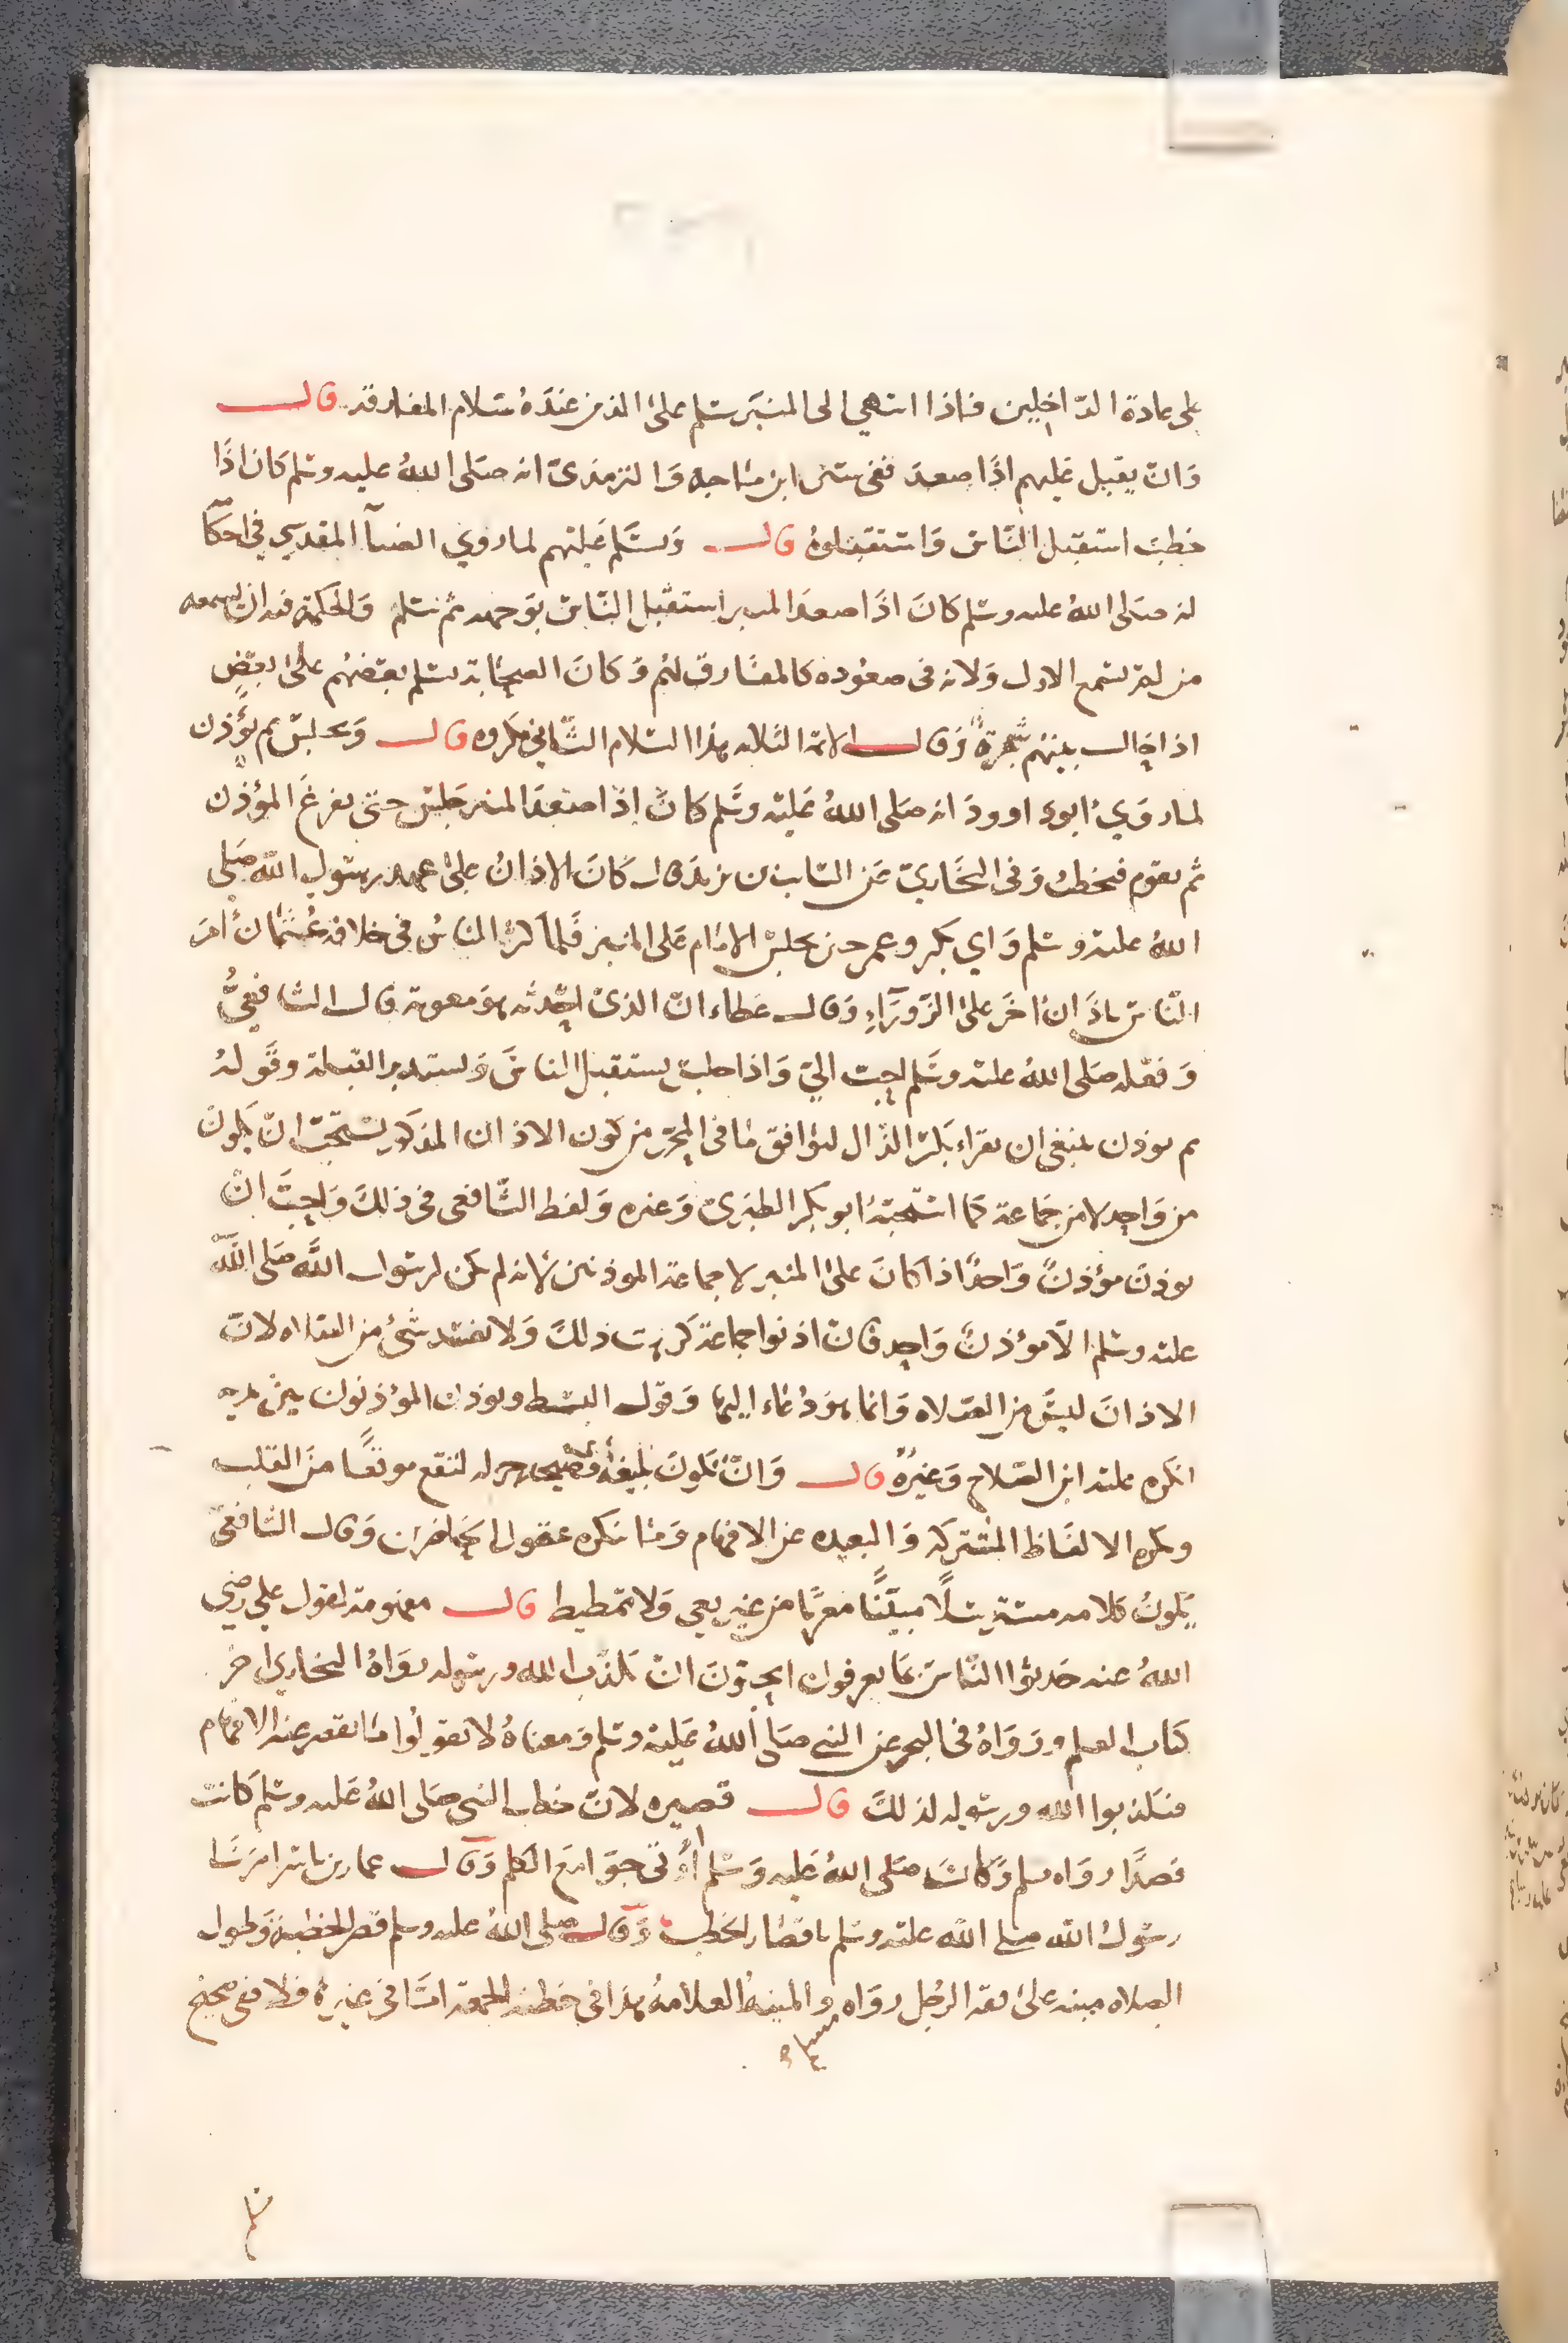 على عادة الداخلين فاذا انتهي الى المنبر سلم على الذين عنده سلام المفارقه قال
وان يقبل عليهم اذا صعد ففي سنن ابن ماجه والترمذي انه صلى الله عليه وسلم كان اذا
خطب استقبل الناس واستقبلوه قال ويسلم عليهم لما روي الضيآ المقدسي في احكا
له صلى الله عليه وسلم كان اذا صعد المنبر استقبل الناس بوجهه ثم سلم والحكمة فيه ان يسمعه
من لم يسمع الاول ولانه في صعوده كالمفارق لهم وكان الصحابة يسلم بعضهم على بعض
اذا حالت بينهم شجرة وقال الائمة الثلاثه هذا السلام الثاني مكروه قال ويجلس ثم يؤذن
لما روي ابو داوود انه صلى الله عليه وسلم كان اذا صعد المنبر جلس حتى يفرغ المؤذن
ثم يقوم فيخطب وفي البخاري عن السائب بن يزيد قال كان الاذان على عهد رسول الله صلى
الله عليه وسلم وابي بكر وعمر حين يجلس الامام على المنبر فلما كثر الناس في خلافة عثمان امر
الناس باذان اخر على الزوراء وقال عطاء ان الذي احدثه هو معوية قال الشافعي
وفعله صلى الله عليه وسلم احب الي واذا جلس يستقبل الناس ويستدبر القبلة وقوله
ثم يوذن ينبغي ان يقراء بكسر الذال ليوافق ما في المحرر من كون الاذان المذكور يستحب ان يكون
من واحد لا من جماعة كما استحبه ابو بكر الطبري وغيره ولفظ الشافعي في ذلك واحب ان
يوذن مؤذن واحد اذا كان على المنبر لا جماعة الموذنين لانه لم يكن لرسول الله صلى الله
عليه وسلم الا مؤذن واحد فان اذنوا جماعة كرهت ذلك ولا يفسد شئ من الصلاه لان
الاذان ليس من الصلاه وانما هو دعاء اليها وقول البسط ويوذن المؤذنون بين يديه
انكره عليه ابن الصلاح وغيره قال وان تكون بليغة فصيحه جزله لتقع موقعا من القلب
ويكره الالفاظ المشتركه والبعيده عن الافهام وما تنكره عقول الحاضرين وقال الشافعي
يكون كلامه مسترسلا مبينا معربا من غير بغي ولا تمطيط قال مفهومة لقول علي رضي
الله عنه حدثوا الناس بما يعرفون اتحبون ان يكذب الله ورسوله رواه البخاري اخر
كتاب العلم ورواه في البحر عن النبي صلى الله عليه وسلم ومعناه لا تقولوا ما تقصر عنه الافهام
فيكذبوا الله ورسوله لذلك قال قصيره لان خطب النبي صلى الله عليه وسلم كانت
قصدا رواه مسلم وكان صلى الله عليه وسلم اوتي جوامع الكلم وقال عمار بن ياسر امرنا
رسول الله صلى الله عليه وسلم باقصار الخطب وقال صلى الله عليه وسلم قصر الخطبة وطول
الصلاه مينه على فقه الرجل رواه والمينه العلامة هذا في خطبه الجمعة اما في غيرها فلا ففي صحيح
مسلم